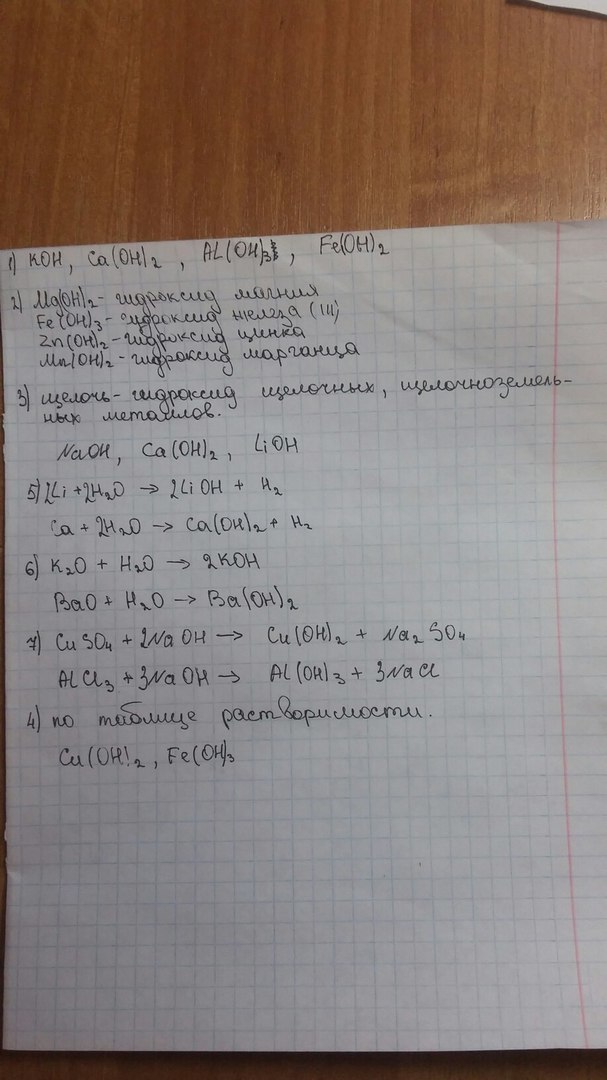 1) KOH, Ca(OH)2, AL(OH)3, Fe(OH)2
2) Mg(OH)2 - гидроксид магния
Fe(OH)3 - гидроксид железа (III)
Zn(OH)2 - гидроксид цинка
Mn(OH)2 - гидроксид марганца
3) щелочь - гидроксид щелочных, щелочноземель-
ных металлов.
NaOH, Ca(OH)2, LiOH
5) 2Li + 2H2O → 2LiOH + H2
Ca + 2H2O → Ca(OH)2 + H2
6) K2O + H2O → 2KOH
BaO + H2O → Ba(OH)2
7) CuSO4 + 2NaOH → Cu(OH)2 + Na2SO4
AlCl3 + 3NaOH → Al(OH)3 + 3NaCl
4) по таблице растворимости.
Cu(OH)2, Fe(OH)3